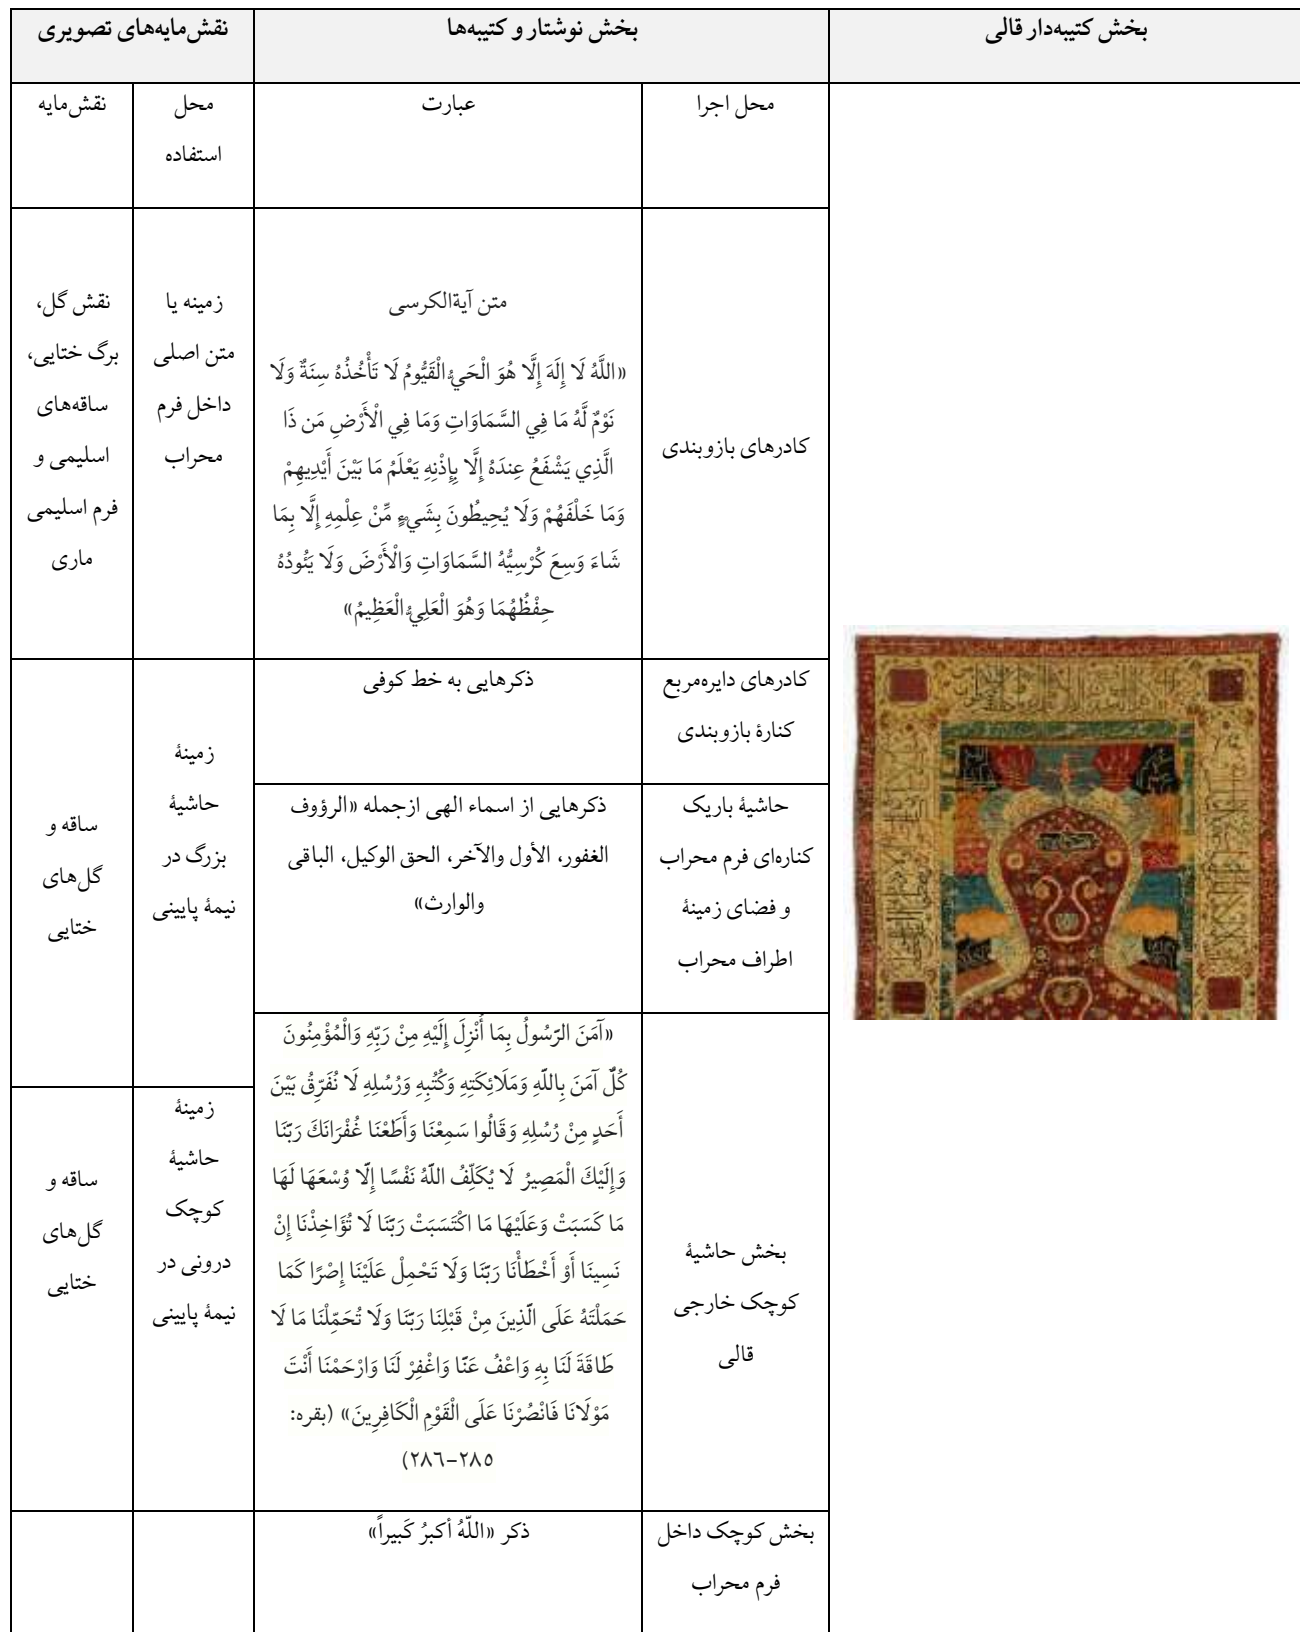 بخش کتیبه‌دار قالی
بخش نوشتار و کتیبه‌ها
نقش‌مایه‌های تصویری
محل اجرا
عبارت
محل
استفاده
نقش‌مایه
کادرهای بازوبندی
متن آیةالکرسی
«اللَّهُ لَا إِلَهَ إِلَّا هُوَ الْحَيُّ الْقَيُّومُ لَا تَأْخُذُهُ سِنَةٌ وَلَا
نَوْمٌ لَّهُ مَا فِي السَّمَاوَاتِ وَمَا فِي الْأَرْضِ مَن ذَا
الَّذِي يَشْفَعُ عِندَهُ إِلَّا بِإِذْنِهِ يَعْلَمُ مَا بَيْنَ أَيْدِيهِمْ
وَمَا خَلْفَهُمْ وَلَا يُحِيطُونَ بِشَيْءٍ مِّنْ عِلْمِهِ إِلَّا بِمَا
شَاءَ وَسِعَ كُرْسِيُّهُ السَّمَاوَاتِ وَالْأَرْضَ وَلَا يَئُودُهُ
حِفْظُهُمَا وَهُوَ الْعَلِيُّ الْعَظِيمُ»
زمینه یا
متن اصلی
داخل فرم
محراب
نقش گل،
برگ ختایی،
ساقه‌های
اسلیمی و
فرم اسلیمی
ماری
کادرهای دایره‌مربع
کنارهٔ بازوبندی
ذکرهایی به خط کوفی
زمینهٔ
حاشیهٔ
بزرگ در
نیمهٔ پایینی
ساقه و
گل‌های
ختایی
حاشیهٔ باریک
کناره‌ای فرم محراب
و فضای زمینهٔ
اطراف محراب
ذکرهایی از اسماء الهی ازجمله «الرؤوف
الغفور، الأول والآخر، الحق الوکیل، الباقی
والوارث»
بخش حاشیهٔ
کوچک خارجی
قالی
«آمَنَ الرَّسُولُ بِمَا أُنْزِلَ إِلَيْهِ مِنْ رَبِّهِ وَالْمُؤْمِنُونَ
كُلٌّ آمَنَ بِاللَّهِ وَمَلَائِكَتِهِ وَكُتُبِهِ وَرُسُلِهِ لَا نُفَرِّقُ بَيْنَ
أَحَدٍ مِنْ رُسُلِهِ وَقَالُوا سَمِعْنَا وَأَطَعْنَا غُفْرَانَكَ رَبَّنَا
وَإِلَيْكَ الْمَصِيرُ لَا يُكَلِّفُ اللَّهُ نَفْسًا إِلَّا وُسْعَهَا لَهَا
مَا كَسَبَتْ وَعَلَيْهَا مَا اكْتَسَبَتْ رَبَّنَا لَا تُؤَاخِذْنَا إِنْ
نَسِينَا أَوْ أَخْطَأْنَا رَبَّنَا وَلَا تَحْمِلْ عَلَيْنَا إِصْرًا كَمَا
حَمَلْتَهُ عَلَى الَّذِينَ مِنْ قَبْلِنَا رَبَّنَا وَلَا تُحَمِّلْنَا مَا لَا
طَاقَةَ لَنَا بِهِ وَاعْفُ عَنَّا وَاغْفِرْ لَنَا وَارْحَمْنَا أَنْتَ
مَوْلَانَا فَانْصُرْنَا عَلَى الْقَوْمِ الْكَافِرِينَ» (بقره:
۲۸۵–۲۸۶)
زمینهٔ
حاشیهٔ
کوچک
درونی در
نیمهٔ پایینی
ساقه و
گل‌های
ختایی
بخش کوچک داخل
فرم محراب
ذکر «اللّهُ أکبرُ کَبیراً»